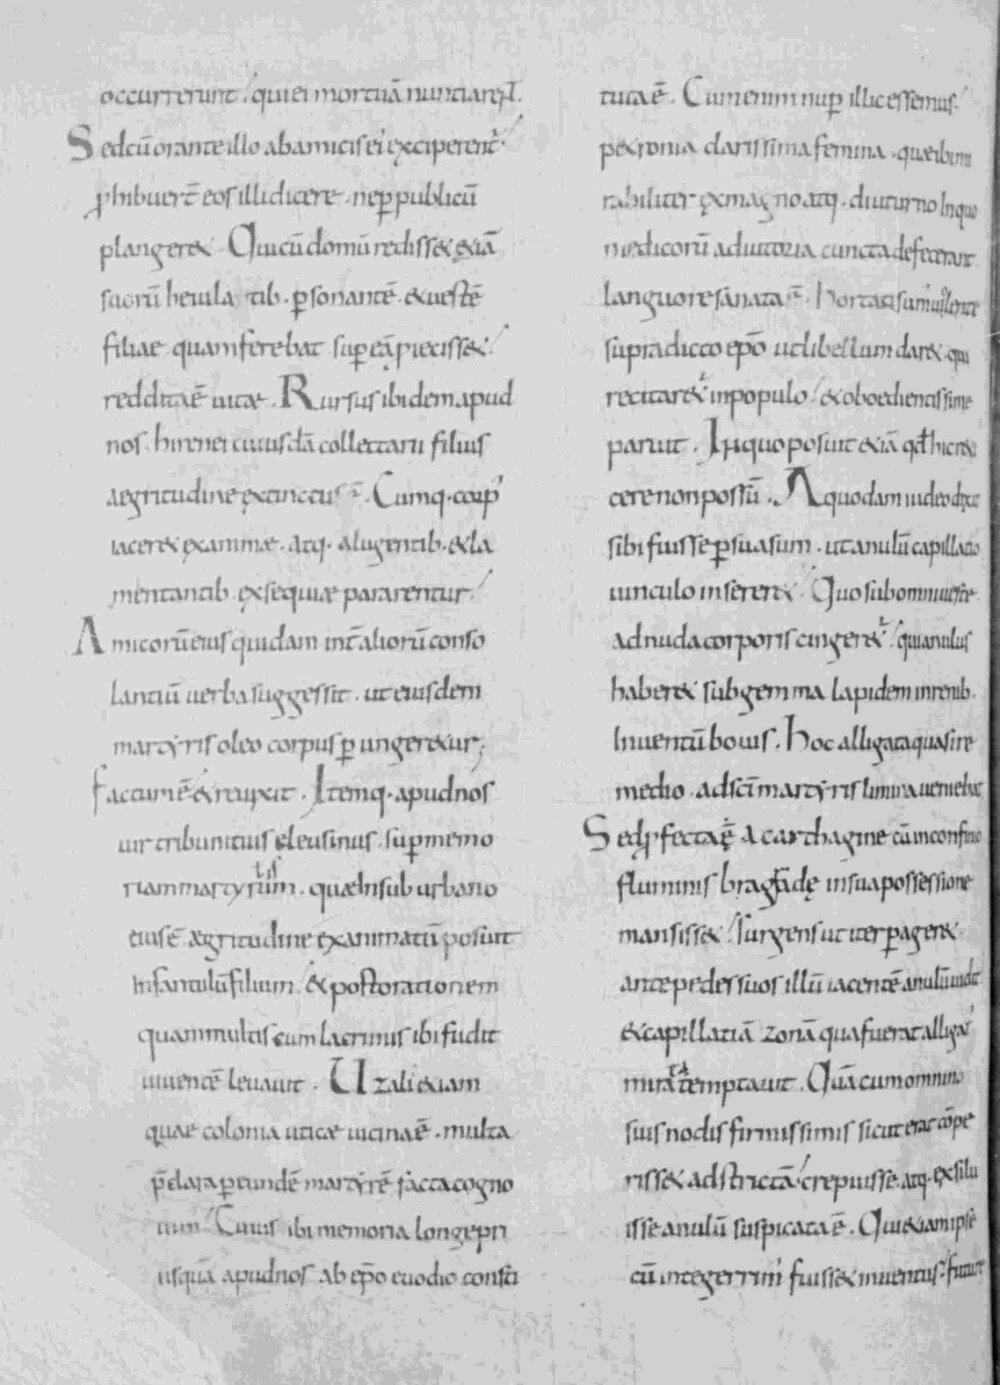 occurrerunt. qui ei mortuā nuntiarent.
Sed cū orante illo ab amicis ei exciperent̄
ꝓhibuer̄t eos illi dicere. ne ꝑ publicū
plangeret. Qui cū domū redisset &iā
suorū heiulatib. ꝑsonantē. & uestē
filiae quam ferebat suꝑ eā piecisset.
reddita ē uitæ. Rursus ibidem apud
nos. hirenei cuiusdā collectarii filius
aegritudine extinctus ē. Cumq. corp'
iaceret exanimæ. atq. a lugentib. & la
mentantib. exsequiæ pararentur.
Amicorū eius quidam int̄ aliorū conso
lantiū uerba suggessit. ut eiusdem
martyris oleo corpus ꝑungeretur;
factum ē & reuixit. Itemq. apud nos
uir tribunitius eleusinus. suꝑ memo
riam martyrum. quæ in suburbano
eius ē. ægritudine exanimatū posuit
Infantulū filium. & post orationem
quam multis cum lacrimis ibi fudit
uiuentē leuauit. Uzali etiam
quae colonia uticæ uicina ē. multa
p̄clara ꝑ eundē martyrē facta cogno
uim'. Cuius ibi memoria longe pri
usquā apud nos ab ep̄o euodio consti
tuta ē. Cum enim nuꝑ illic essemus.
petronia clarissima femina. quæ ibi mi
rabiliter ex magno atq. diuturno In quo
medicorū adiutoria cuncta defecerant
languore sanata ē. hortati sum'
supradicto ep̄o ut libellum daret. qui
recitaret' in populo. & oboedientissime
paruit. In quo posuit &iā qđ hic reti
cere non possū. A quodam iudeo dixit
sibi fuisse ꝑsuasum. ut anulū capillacio
uinculo insereret. Quo sub omni ueste
ad nuda corporis cingeret'. qui anulus
haberet sub gemma lapidem in renib.
Inuentū bouis. hoc alligata quasi re
medio. ad sc̄i martyris limina ueniebat
Sed ꝓfecta ē a carthagine cū in confinio
fluminis bragadę in sua possessione
mansisset. surgens ut iter ꝑageret
ante pedes suos illū iacentē anulū uidit
& capillatiā zonā qua fuerat alligat'
mirata temptauit. Quā cum omnino
suis nodis firmissimis sicut erat cōpe
risset adstrictā. crepuisse atq. exsilu
isse anulū suspicata ē. Qui etiam ipse
cū integerrim' fuisset inuentus. futuræ